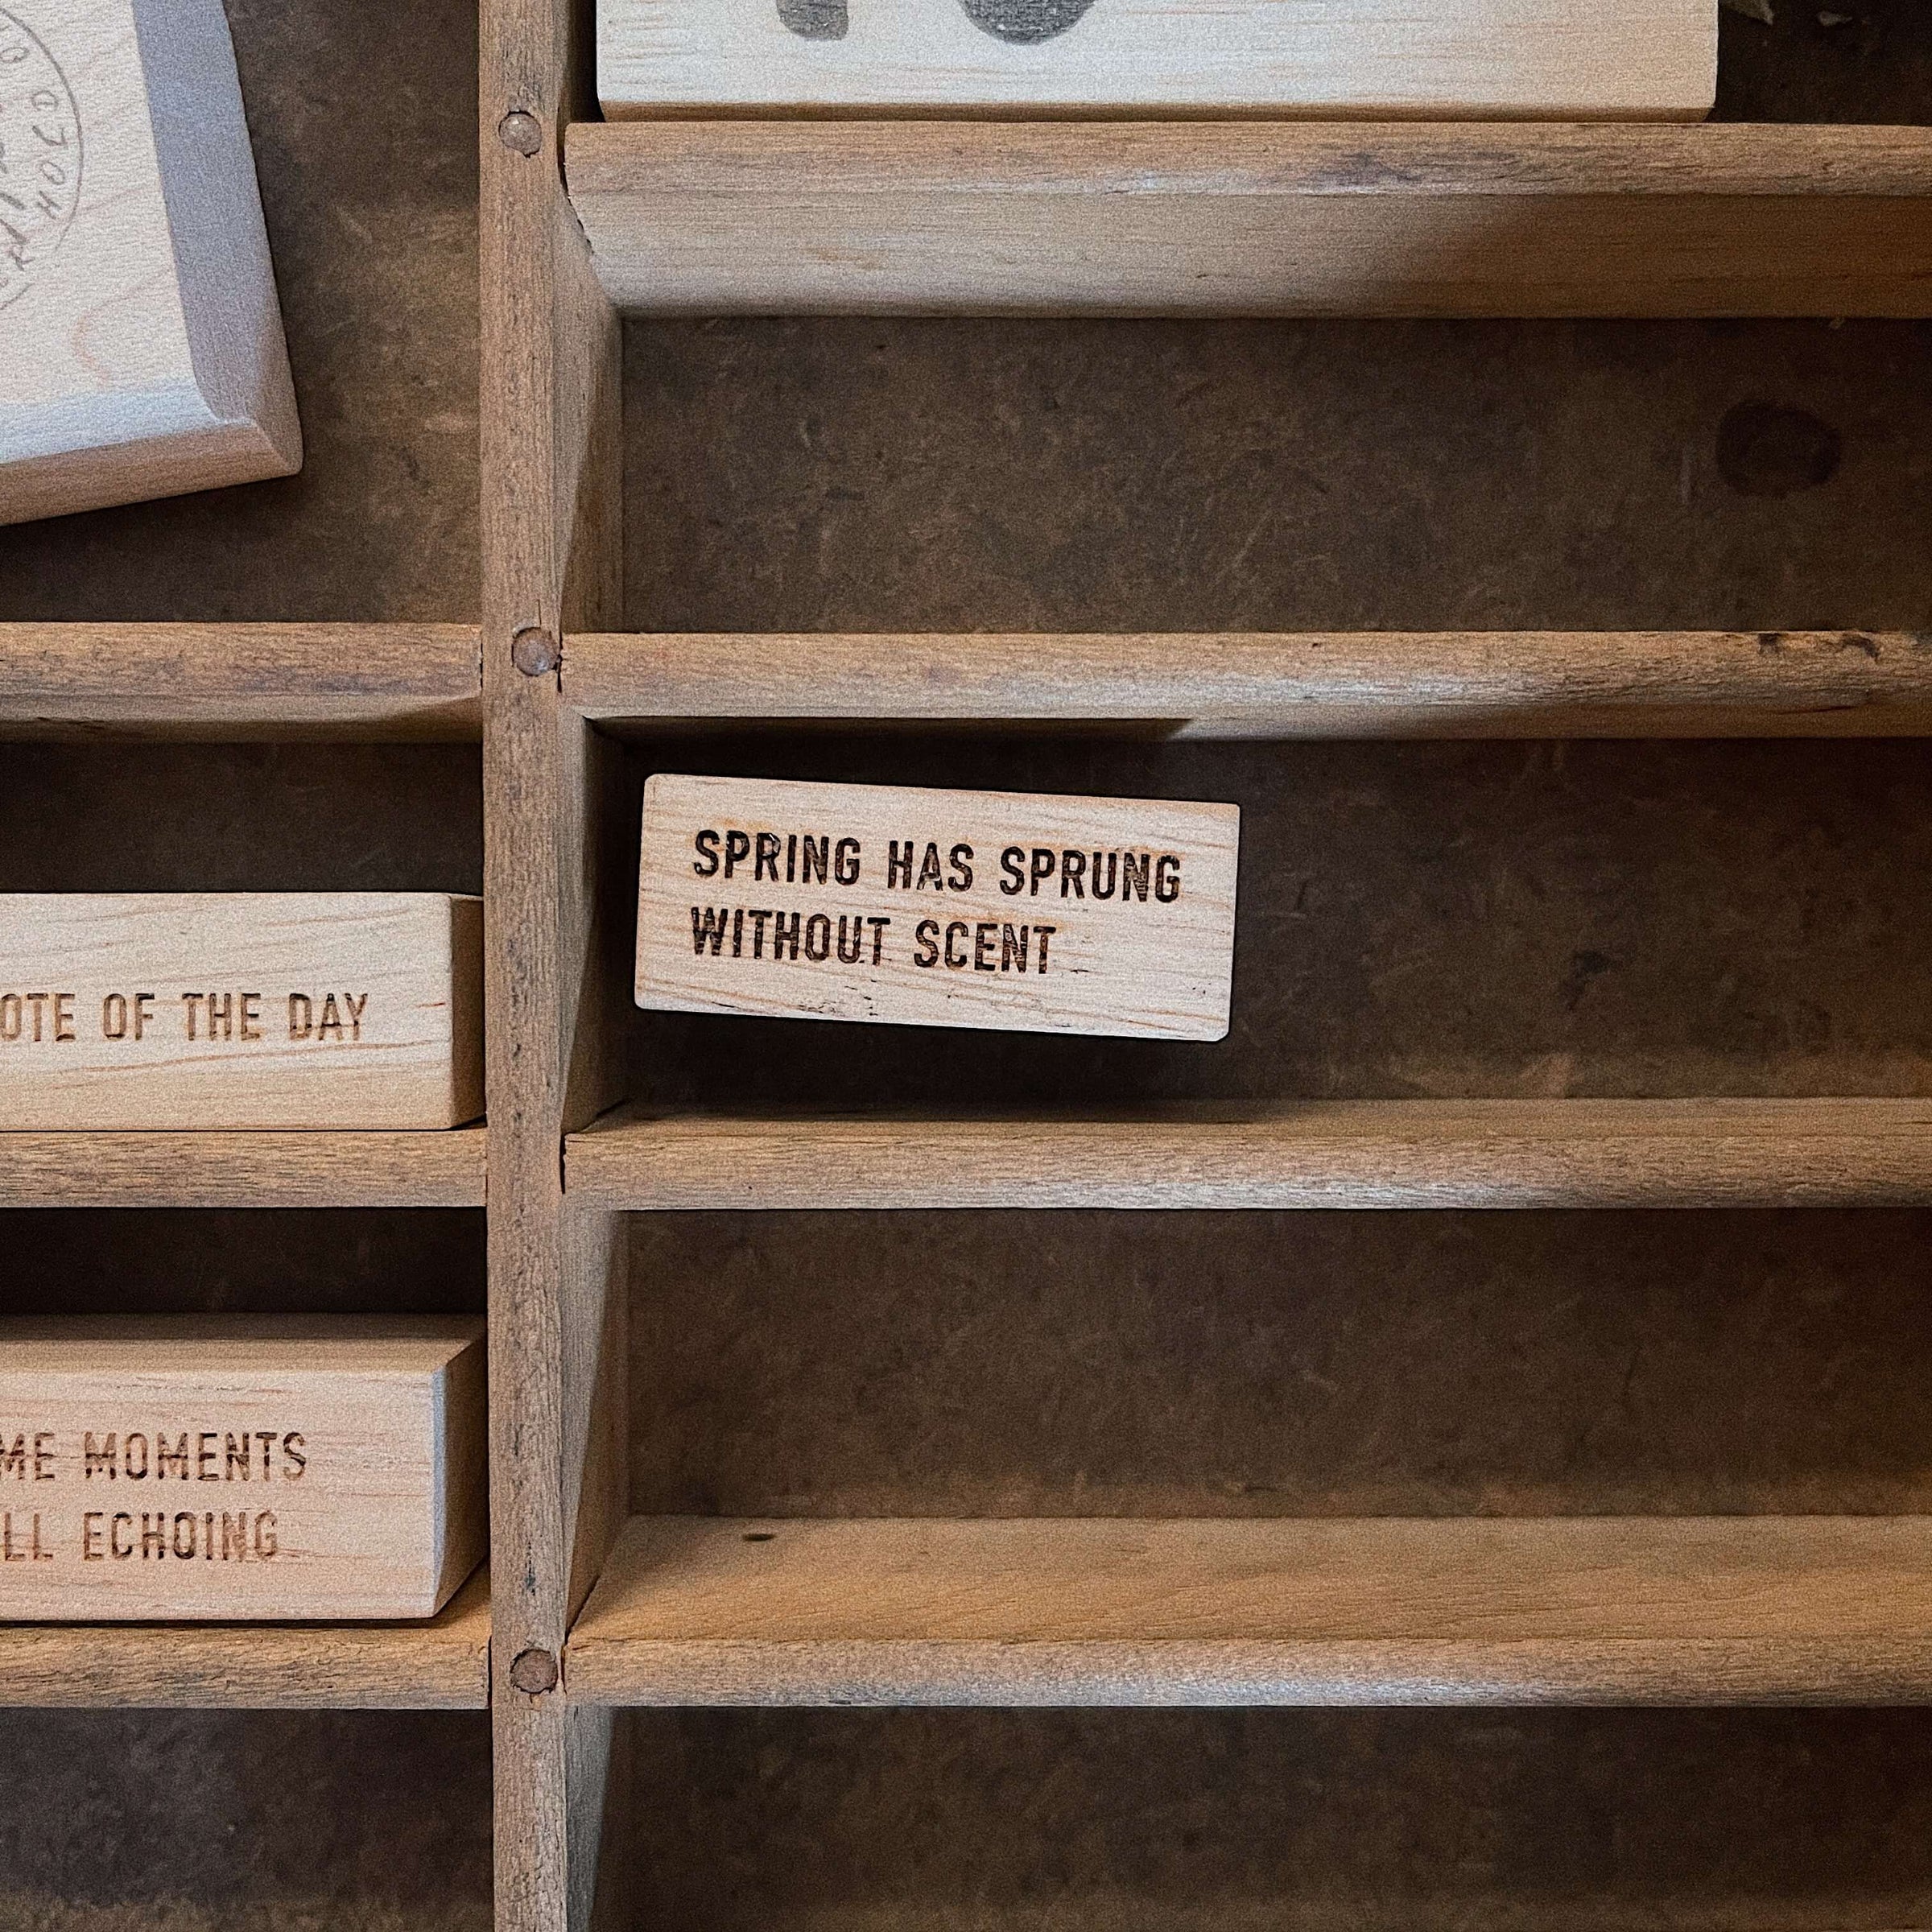 SPRING HAS SPRUNG
WITHOUT SCENT
OTE OF THE DAY
ME MOMENTS
LL ECHOING